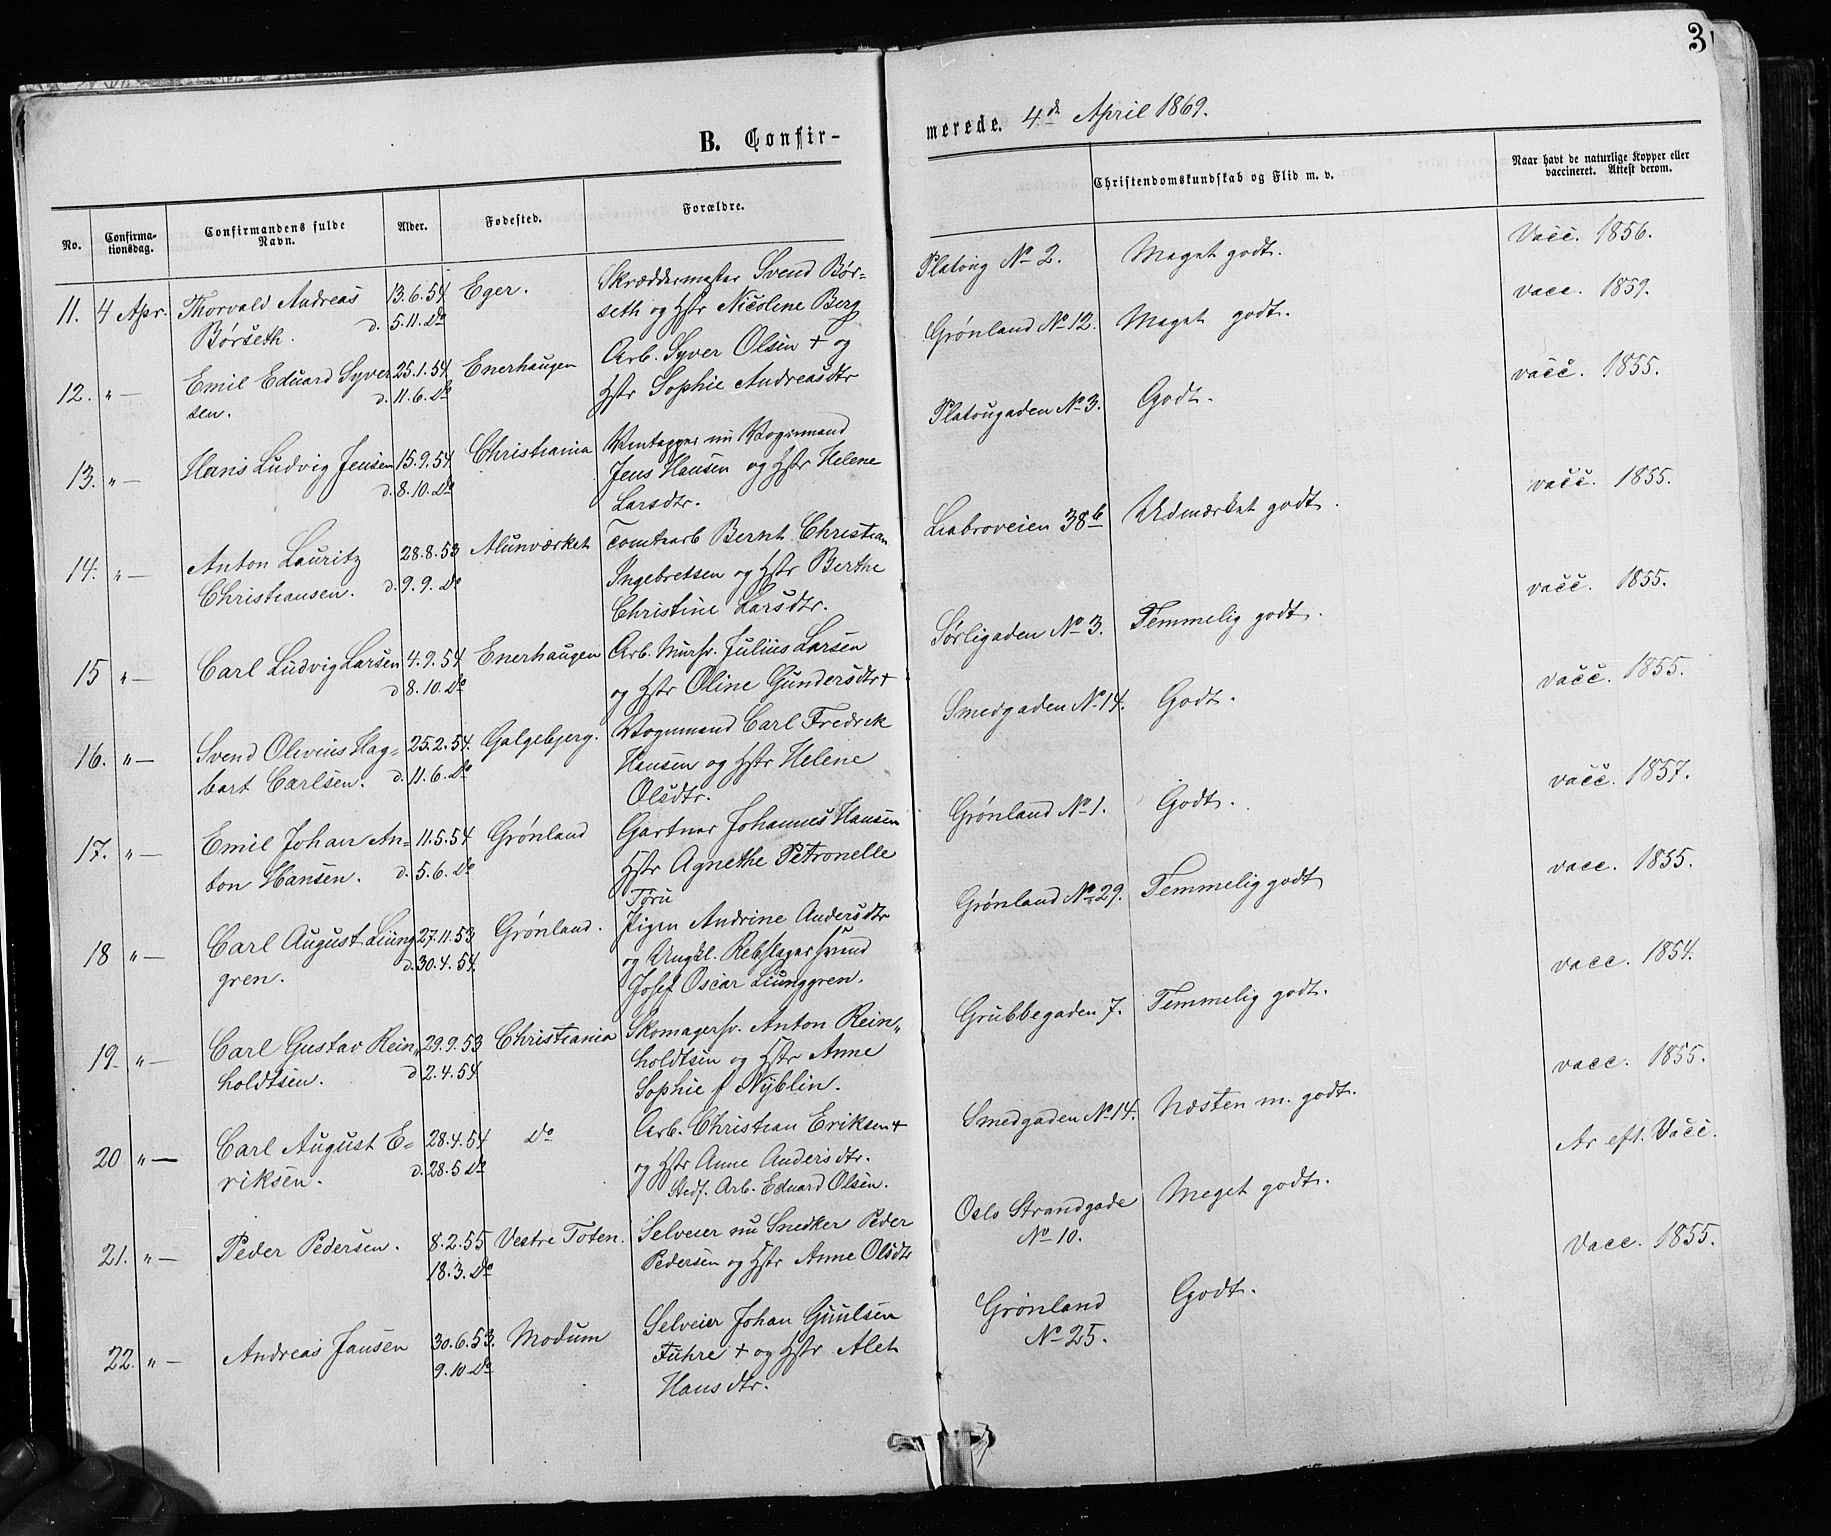 3
B. Confir-
merede. 4de April 1869.
No.
Confirma-
tionsdag.
Confirmandens fulde
Navn.
Alder.
Fødested.
Forældre.
Christendomskundskab og Flid m. v.
Naar havt de naturlige Kopper eller
vaccineret. Attest derom.
11. 4 Apr. Thorvald Andreas 13.6.54 Eger. Skræddermester Svend Bør= Platoug No 2. Meget godt. Vacc. 1856.
Børseth. d. 5.11. Do seth og Hstr Nicoline Berg
12. " — Emil Eduard Syver 25.1.54 Enerhaugen Arb. Syver Olsen + og Grønland No 12. Meget godt. vacc. 1859.
sen. d. 11.6. Do Hstr Sophie Andreasdtr
13. " — Hans Ludvig Jensen 15.9.54 Christiania Vintapper nu Vognmand Platougaden No 3. Godt. vacc. 1855.
d. 8.10. Do Jens Hansen og Hstr Helene
Larsdtr.
14. " — Anton Lauritz 28.8.53 Alunværket Tomtearb Bernt Christian Ljabroveien 38b Udmærket godt. vacc. 1855.
Christiansen. d. 9.9. Do Ingebretsen og Hstr Berthe
Christine Larsdtr.
15 " — Carl Ludvig Larsen 4.9.54 Enerhaugen Arb. Mursv. Julius Larsen Sørligaden No 3. Temmelig godt. vacc. 1855.
d 8.10. Do og Hstr Oline Gundersdtr +
16. " — Svend Olivius Hag= 25.2.54. Galgebjerg. Vognmand Carl Fredrik Smedgaden No 14. Godt. vacc. 1855.
bart Carlsen. d. 11.6. Do Hansen og Hstr Helene
Olsdtr.
17. " — Emil Johan An= 11.5.54 Grønland Gartner Johannes Hansen Grønland No 1. Godt. vacc. 1857.
ton Hansen. d. 5.6. Do Hstr Agnethe Petronelle
Toru
18 " — Carl August Liung 27.11.53 Grønland. Pigen Andrine Andersdtr Grønland No 29. Temmelig godt vacc. 1855.
gren. d. 30.4.54. og Ungkl. Rebslagersvend
Josef Oscar Liunggren.
19. " — Carl Gustav Rein" 29.9.53 Christiania Skomagersv. Anton Rein" Grubbegaden 7. Temmelig godt. vacc. 1854.
holdtsen. d 2.4.54 holdtsen og Hstr Anne
Sophie f Nyblin.
20 " — Carl August E= 28.4.54 Do Arb. Christian Eriksen + Smedgaden No 14. Næsten m. godt. vacc. 1855.
riksen. d. 28.5 Do og Hstr Anne Andersdtr.
Stedf. Arb. Eduard Olsen.
21. " — Peder Pedersen. 8.2.55 Vestre Toten. Selveier nu Snedker Peder Oslo Strandgade Meget godt. Ar eft. Vacc.
18.3. Do Pedersen og Hstr Anne Olsdtr No 10.
22. " — Andreas Jansen 30.6.53. Modum Selveier Johan Guulsen Grønland Godt. Vacc. 1855.
9.10. Do Fuhre + og Hstr Alet No 25.
Hansdtr.